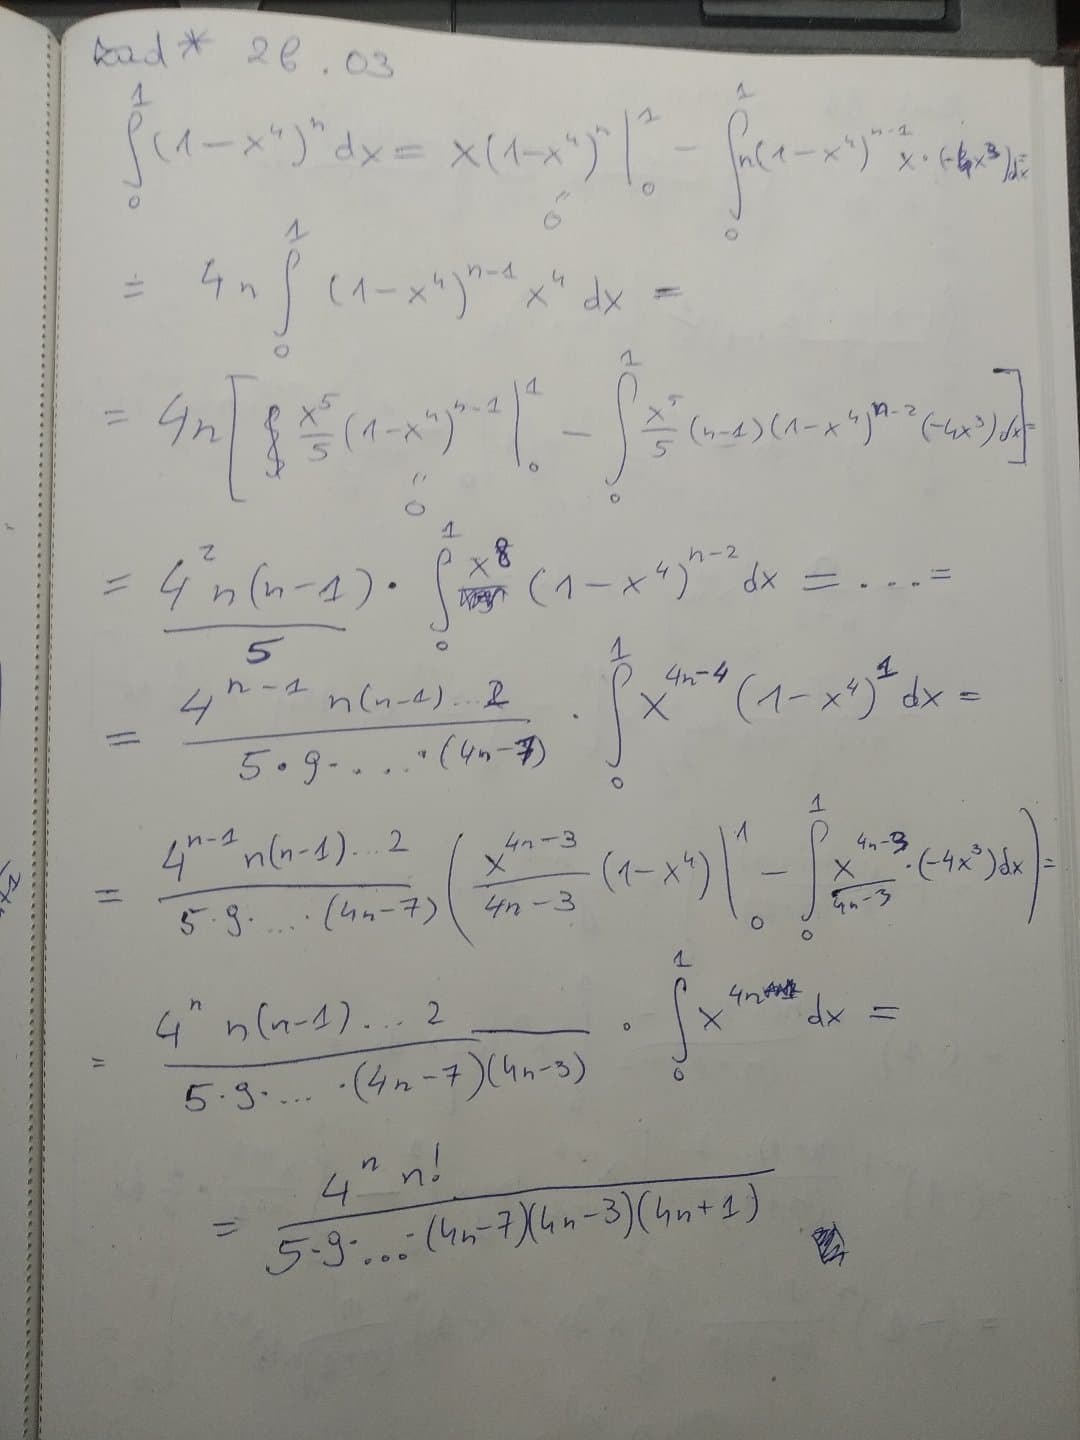 zad* 26.03
∫₀¹ (1-x⁴)ⁿ dx = x(1-x⁴)ⁿ |₀¹ - ∫₀¹ n(1-x⁴)ⁿ⁻¹ x·(-4x³)dx =
= 4n ∫₀¹ (1-x⁴)ⁿ⁻¹ x⁴ dx =
= 4n [ x⁵/5 (1-x⁴)ⁿ⁻¹ |₀¹ - ∫₀¹ x⁵/5 (n-1)(1-x⁴)ⁿ⁻² (-4x³) dx ] =
= 4² n(n-1) / 5 · ∫₀¹ x⁸ (1-x⁴)ⁿ⁻² dx = ... =
= 4ⁿ⁻¹ n(n-1)...2 / 5·9·...·(4n-7) · ∫₀¹ x⁴ⁿ⁻⁴ (1-x⁴)¹ dx =
= 4ⁿ⁻¹ n(n-1)...2 / 5·9·...(4n-7) ( x⁴ⁿ⁻³ / 4n-3 (1-x⁴) |₀¹ - ∫₀¹ x⁴ⁿ⁻³ / 4n-3 ·(-4x³)dx ) =
= 4ⁿ n(n-1)...2 / 5·9·...·(4n-7)(4n-3) · ∫₀¹ x⁴ⁿ dx =
= 4ⁿ n! / 5·9·...·(4n-7)(4n-3)(4n+1)